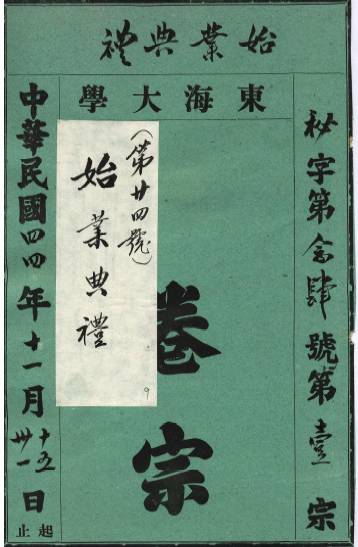 始業典禮
東海大學
秘字第念肆號第壹宗
(第廿四號)
始業典禮
9
卷宗
中華民國四四年十一月十五 卅一日起止